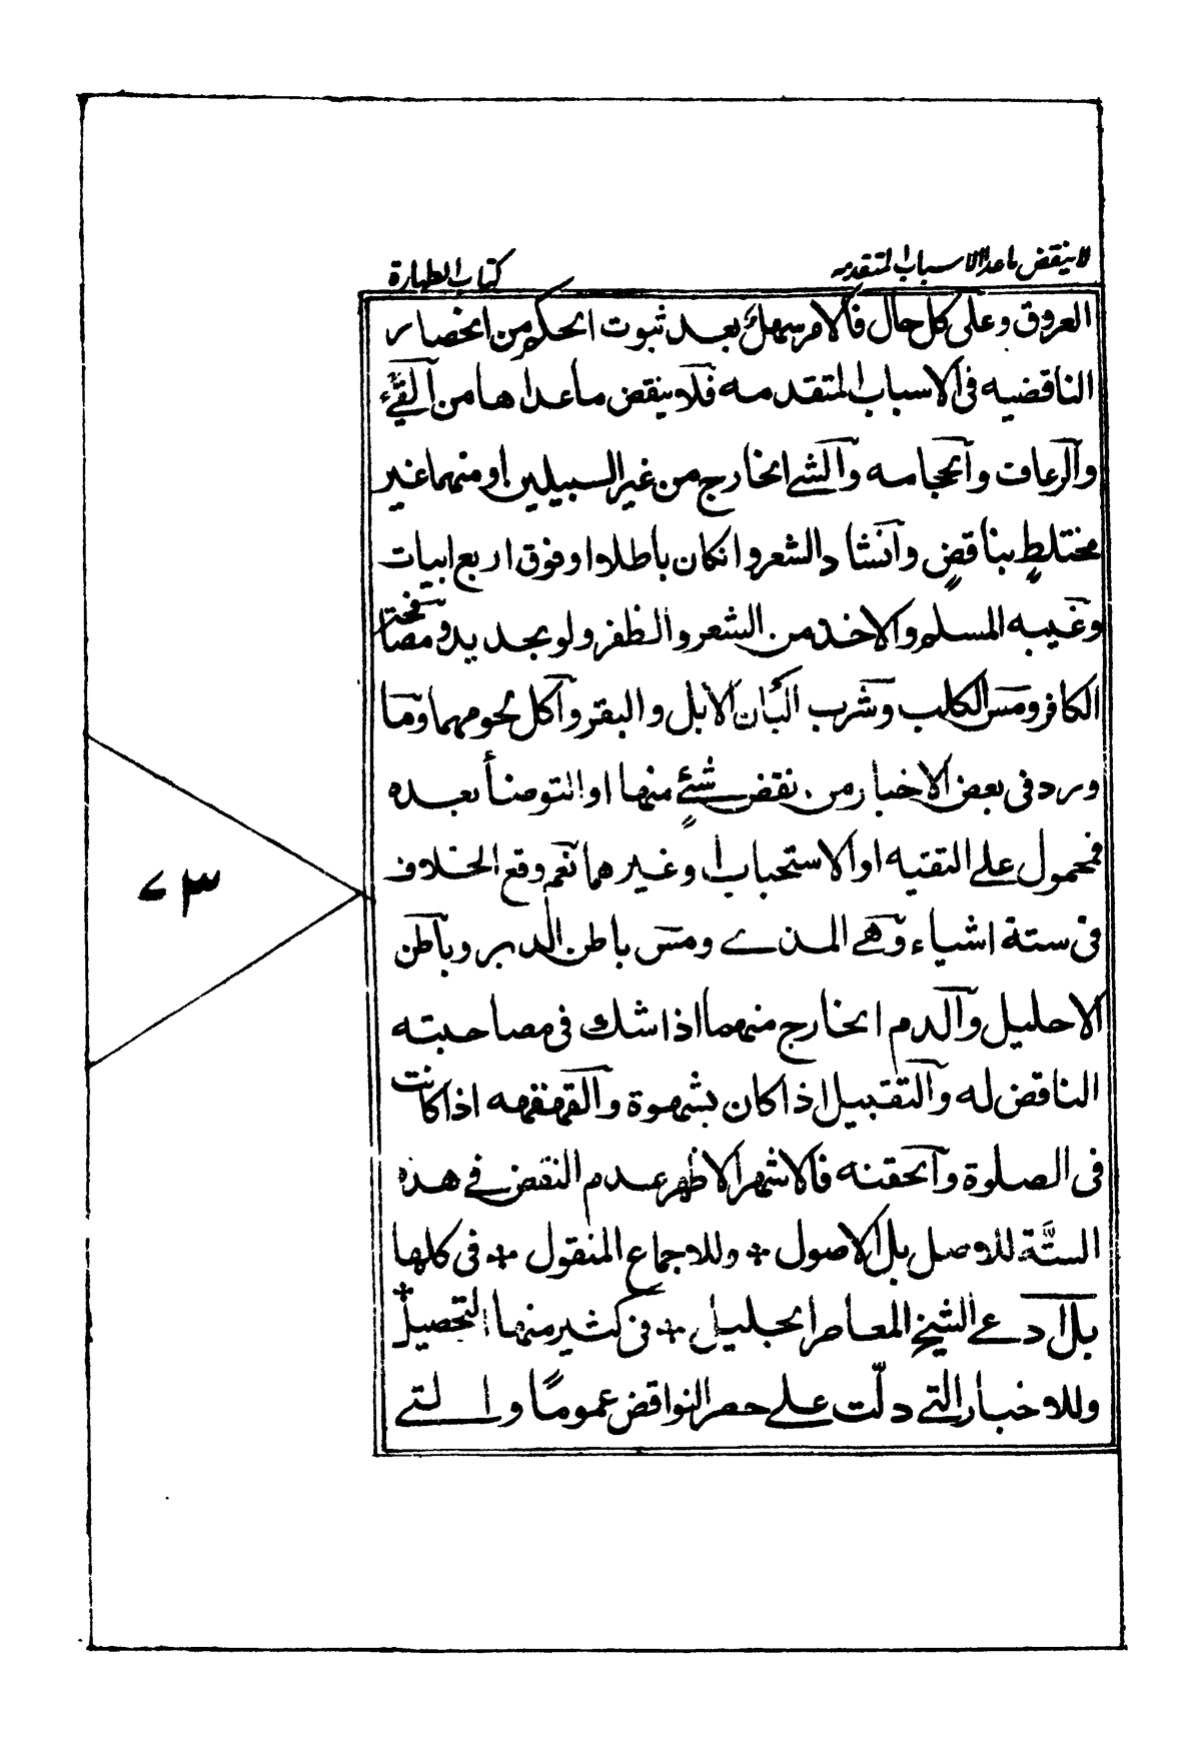 لا ينقض ما عدا الاسباب المتقدمه
كتاب الطهارة
العروق وعلى كل حال فالامر سهل بعد ثبوت الحكم من انحصار
الناقضيه فى الاسباب المتقدمه فلا ينقض ما عداها من القئ
والرعاف والحجامه والشئ الخارج من غير السبيلين او منهما غير
مختلطٍ بناقضٍ وانشاد الشعر وانكان باطلا او فوق اربع ابيات
وغيبه المسلم والاخذ من الشعر والظفر ولو بحديد ومصافحة
الكافر ومس الكلب وشرب البان الابل والبقر واكل لحومهما وما
ورد فى بعض الاخبار من نقض شئٍ منها او التوضأ بعده
فمحمول على التقيه او الاستحباب او غيرهما نعم وقع الخلاف
فى ستة اشياء وهى المذى ومس باطن الدبر وباطن
الاحليل والدم الخارج منهما اذا شك فى مصاحبته
الناقض له والتقبيل اذا كان بشهوة والقهقهه اذا كانت
فى الصلوة والحقنه فالاشهر الاظهر عدم النقض فى هذه
الستَّة للاصل بل الاصول + وللاجماع المنقول + فى كلها
بل ادعى الشيخ المعاصر الجليل + فى كثير منها التحصيل +
وللاخبار التى دلّت على حصر النواقض عموماً والتى
٧٣